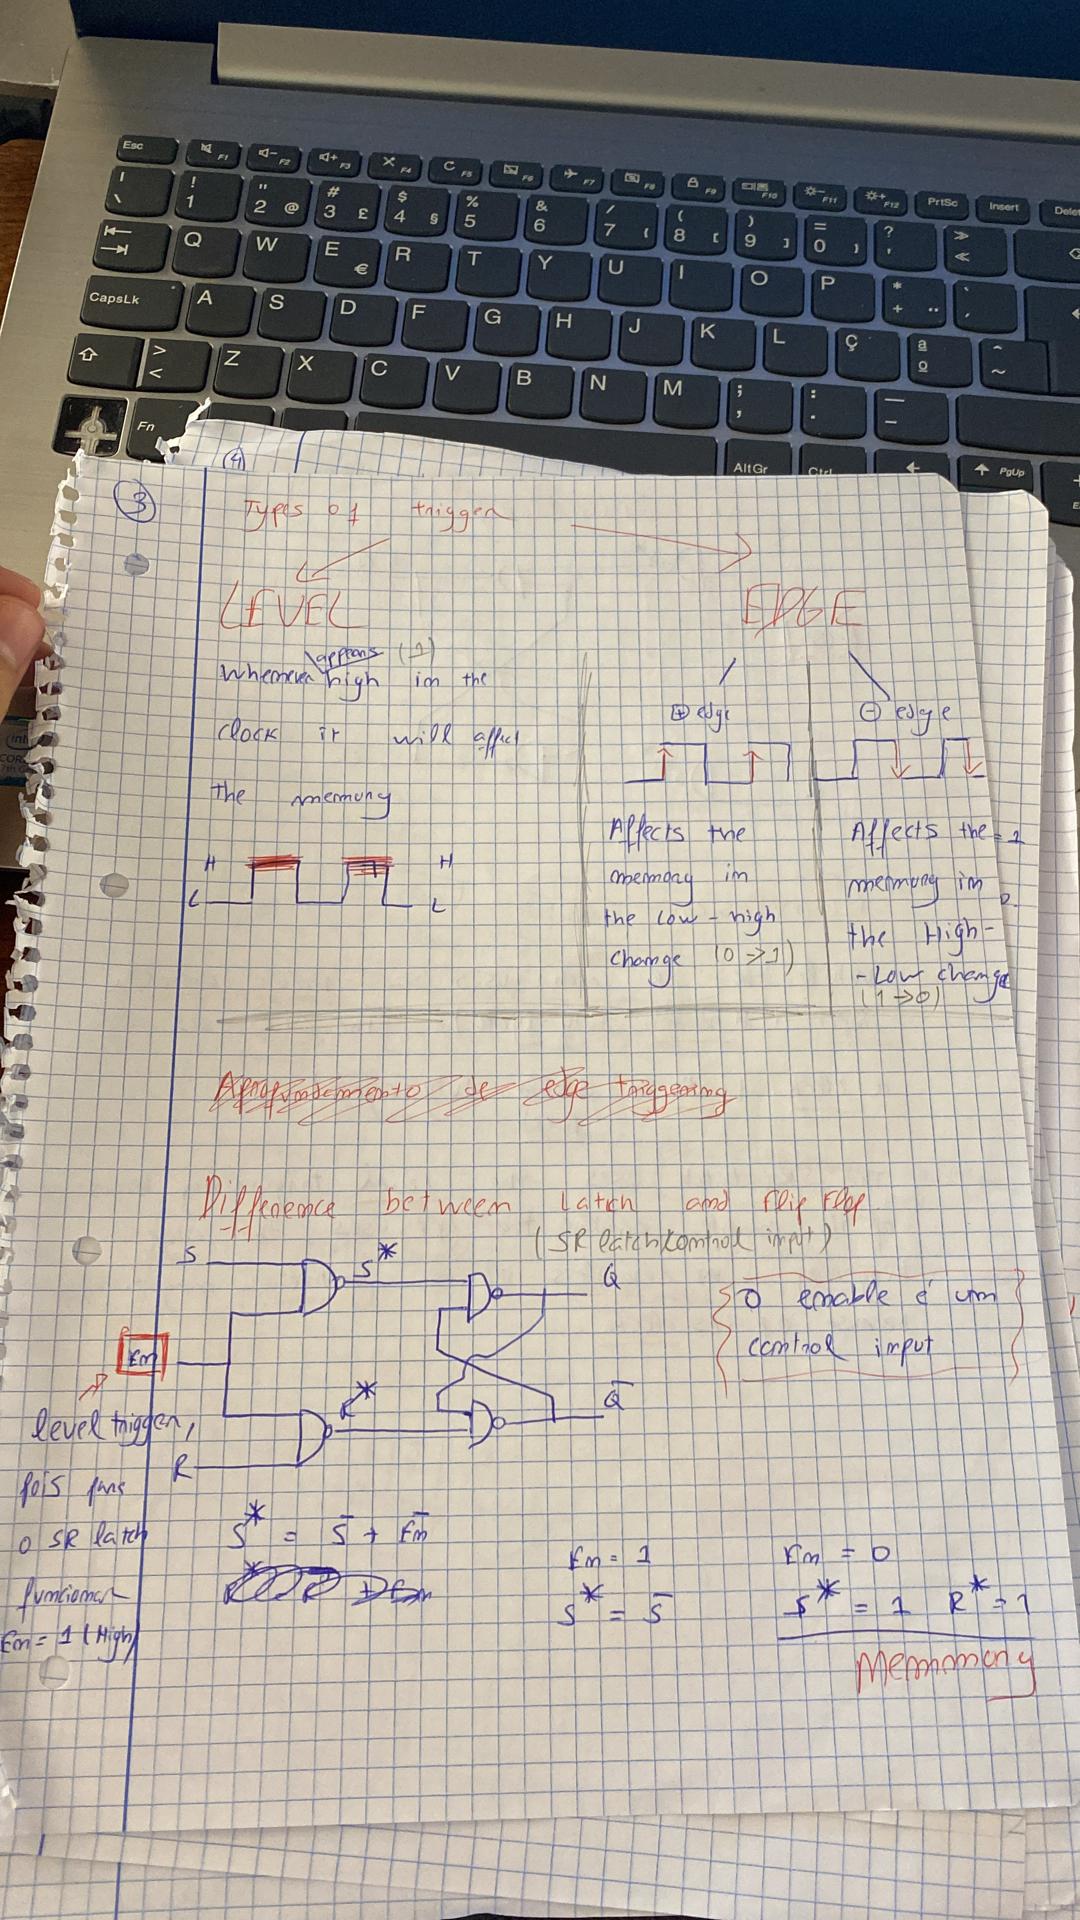 Esc F1 F2 F3 F4 F5 F6 F7 F8 F9 F10 F11 F12 PrtSc Insert Delet
| \ ! 1 " 2 @ # 3 £ $ 4 § % 5 & 6 / 7 { ( 8 [ ) 9 ] = 0 } ? ' » «
Q W E € R T Y U I O P * + ¨ ` ´
CapsLk A S D F G H J K L Ç ª º ^ ~
> < Z X C V B N M ; , : . _ -
Fn AltGr Ctrl PgUp
(4)
3
Types of trigger
LEVEL EDGE
appears (1)
Whenever high in the
clock it will affect
the memory
H H
L L
+ edge
- edge
Affects the
memory in
the low-high
change (0->1)
Affects the = 1
memory in
the High-
-Low change
(1->0)
Aprofundamento de edge triggering
Difference between latch and flip flop
(SR latch/control input)
S S* Q
En
R* Q̅
R
O enable é um
control input
level trigger,
pois para
o SR latch
funcionar
En = 1 (High)
S* = S̅ + E̅n̅
En = 1
S* = S̅
En = 0
S* = 1 R* = 1
Memory